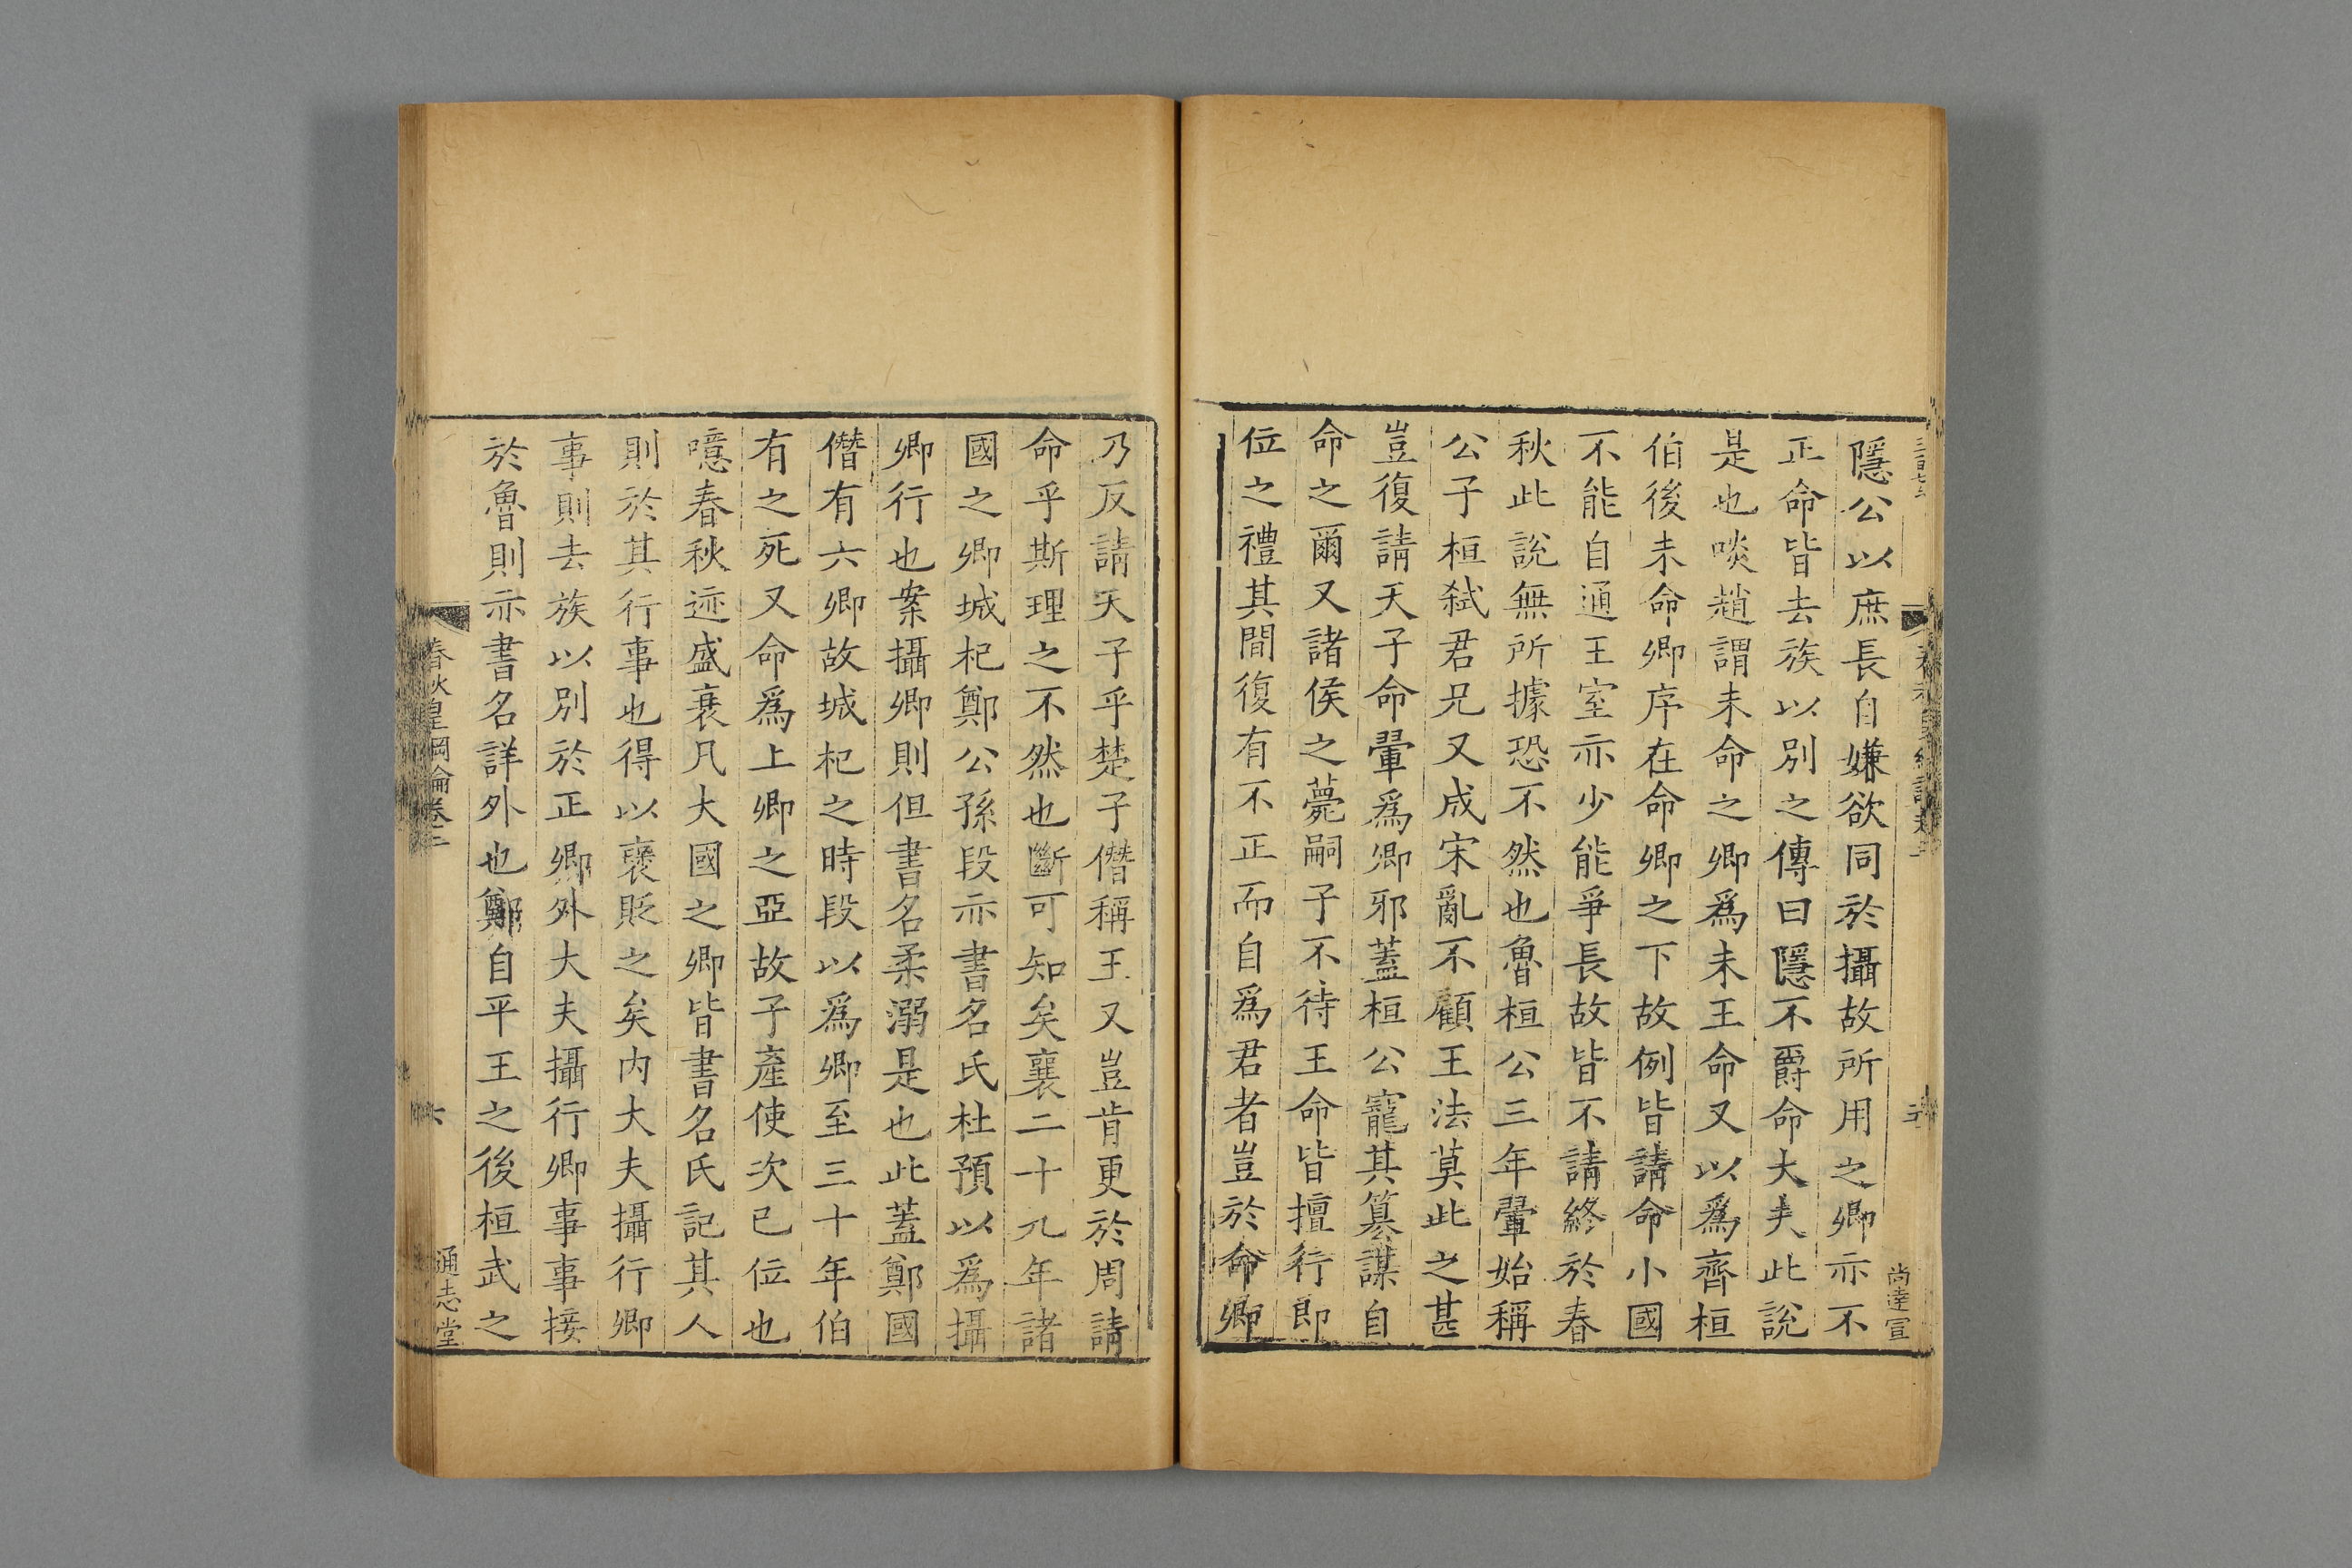 隱公以庶長自嫌欲同於攝故所用之卿亦不
正命皆去族以別之傳曰隱不爵命大夫此說
是也啖趙謂未命之卿爲未王命又以爲齊桓
伯後未命卿序在命卿之下故例皆請命小國
不能自通王室亦少能爭長故皆不請終於春
秋此說無所據恐不然也魯桓公三年翬始稱
公子桓弑君兄又成宋亂不顧王法莫此之甚
豈復請天子命翬爲卿邪蓋桓公寵其篡謀自
命之爾又諸侯之薨嗣子不待王命皆擅行即
位之禮其間復有不正而自爲君者豈於命卿
尚達宣
乃反請天子乎楚子僭稱王又豈肯更於周請
命乎斯理之不然也斷可知矣襄二十九年諸
國之卿城杞鄭公孫段亦書名氏杜預以爲攝
卿行也案攝卿則但書名柔溺是也此蓋鄭國
僭有六卿故城杞之時段以爲卿至三十年伯
有之死又命爲上卿之亞故子產使次己位也
噫春秋迹盛衰凡大國之卿皆書名氏記其人
則於其行事也得以襃貶之矣內大夫攝行卿
事則去族以別於正卿外大夫攝行卿事事接
於魯則亦書名詳外也鄭自平王之後桓武之
春秋皇綱論卷三
六
通志堂